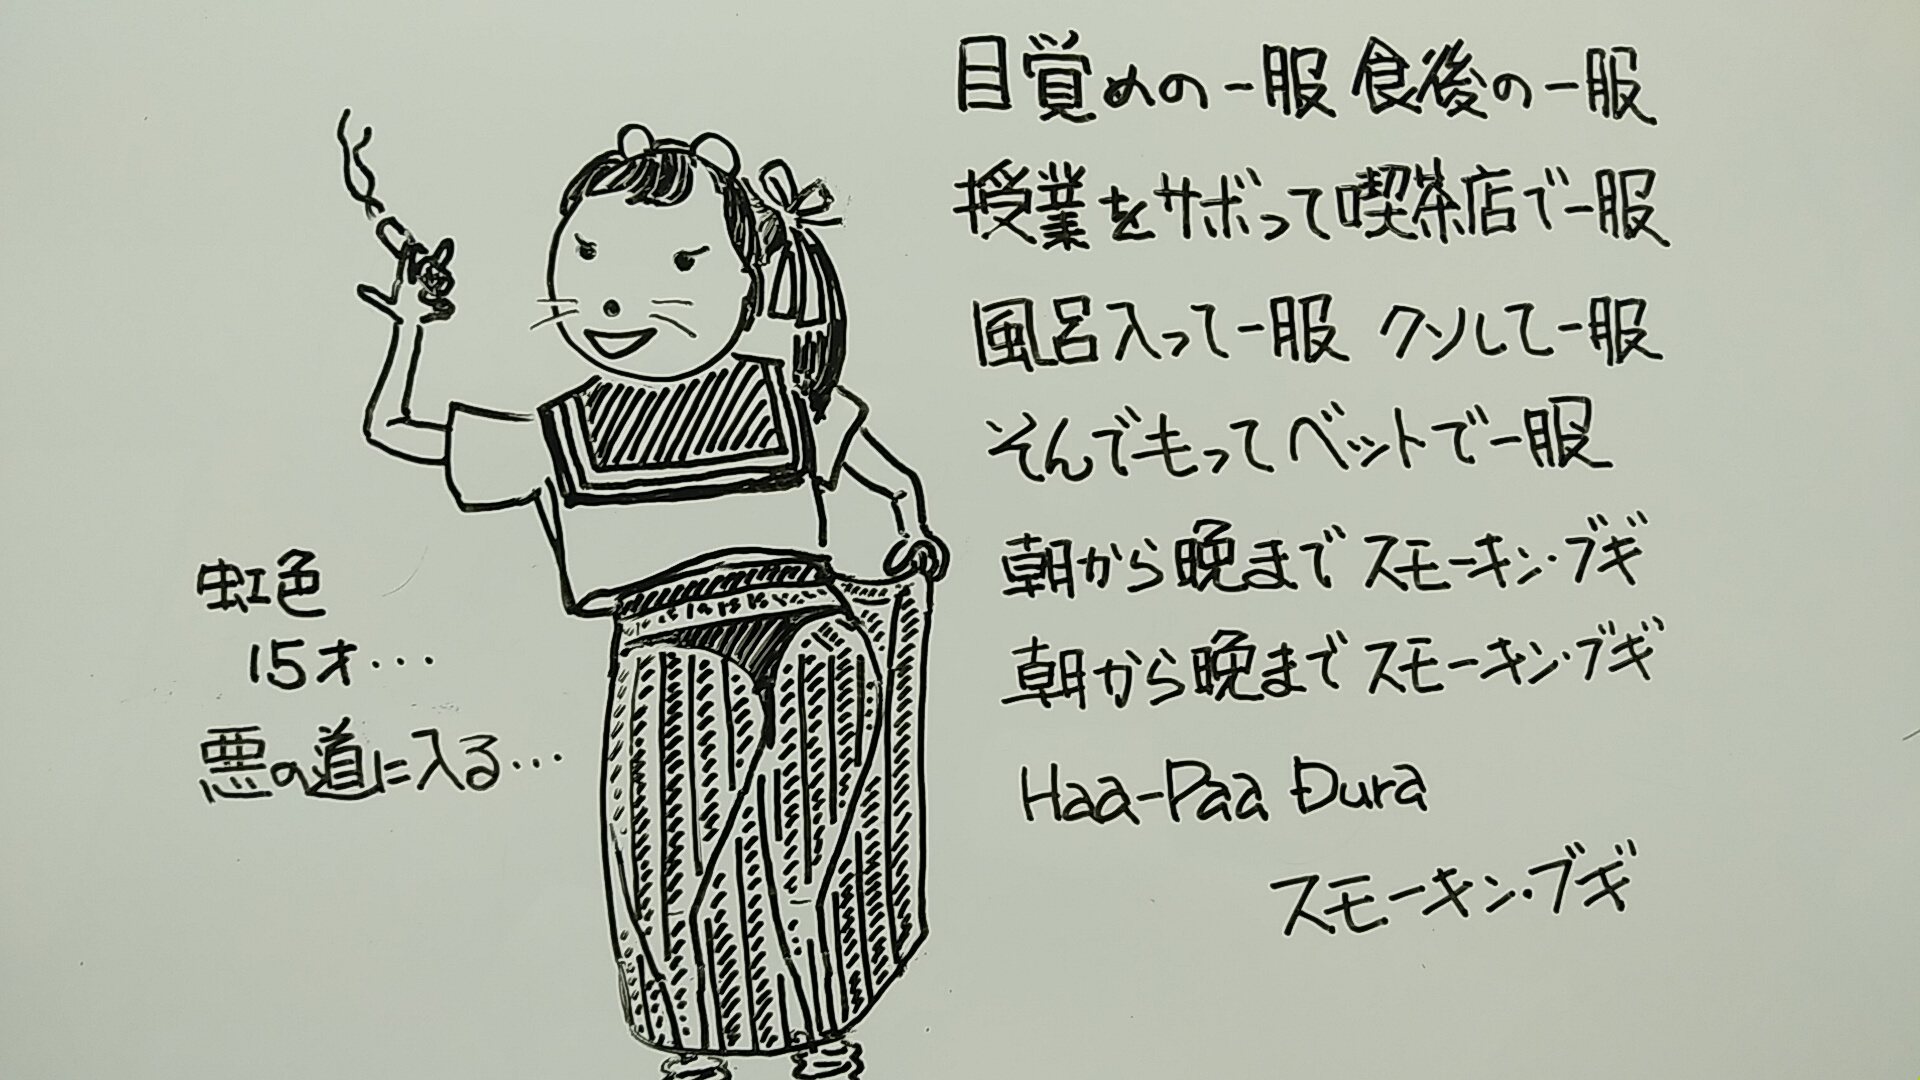 目覚めの一服 食後の一服
授業をサボって喫茶店で一服
風呂入って一服 クソして一服
そんでもってベットで一服
朝から晩までスモーキン・ブギ
朝から晩までスモーキン・ブギ
Haa-Paa Dura
スモーキン・ブギ
虹色
15才・・・
悪の道に入る・・・